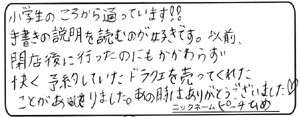 小学生のころから通っています!!
手書きの説明を読むのが好きです。以前、
開店後に行ったのにもかかわらず
快く予約していたドラクエを売ってくれた
ことがありました。あの時はありがとうございました♡
ニックネーム ピーチ姫